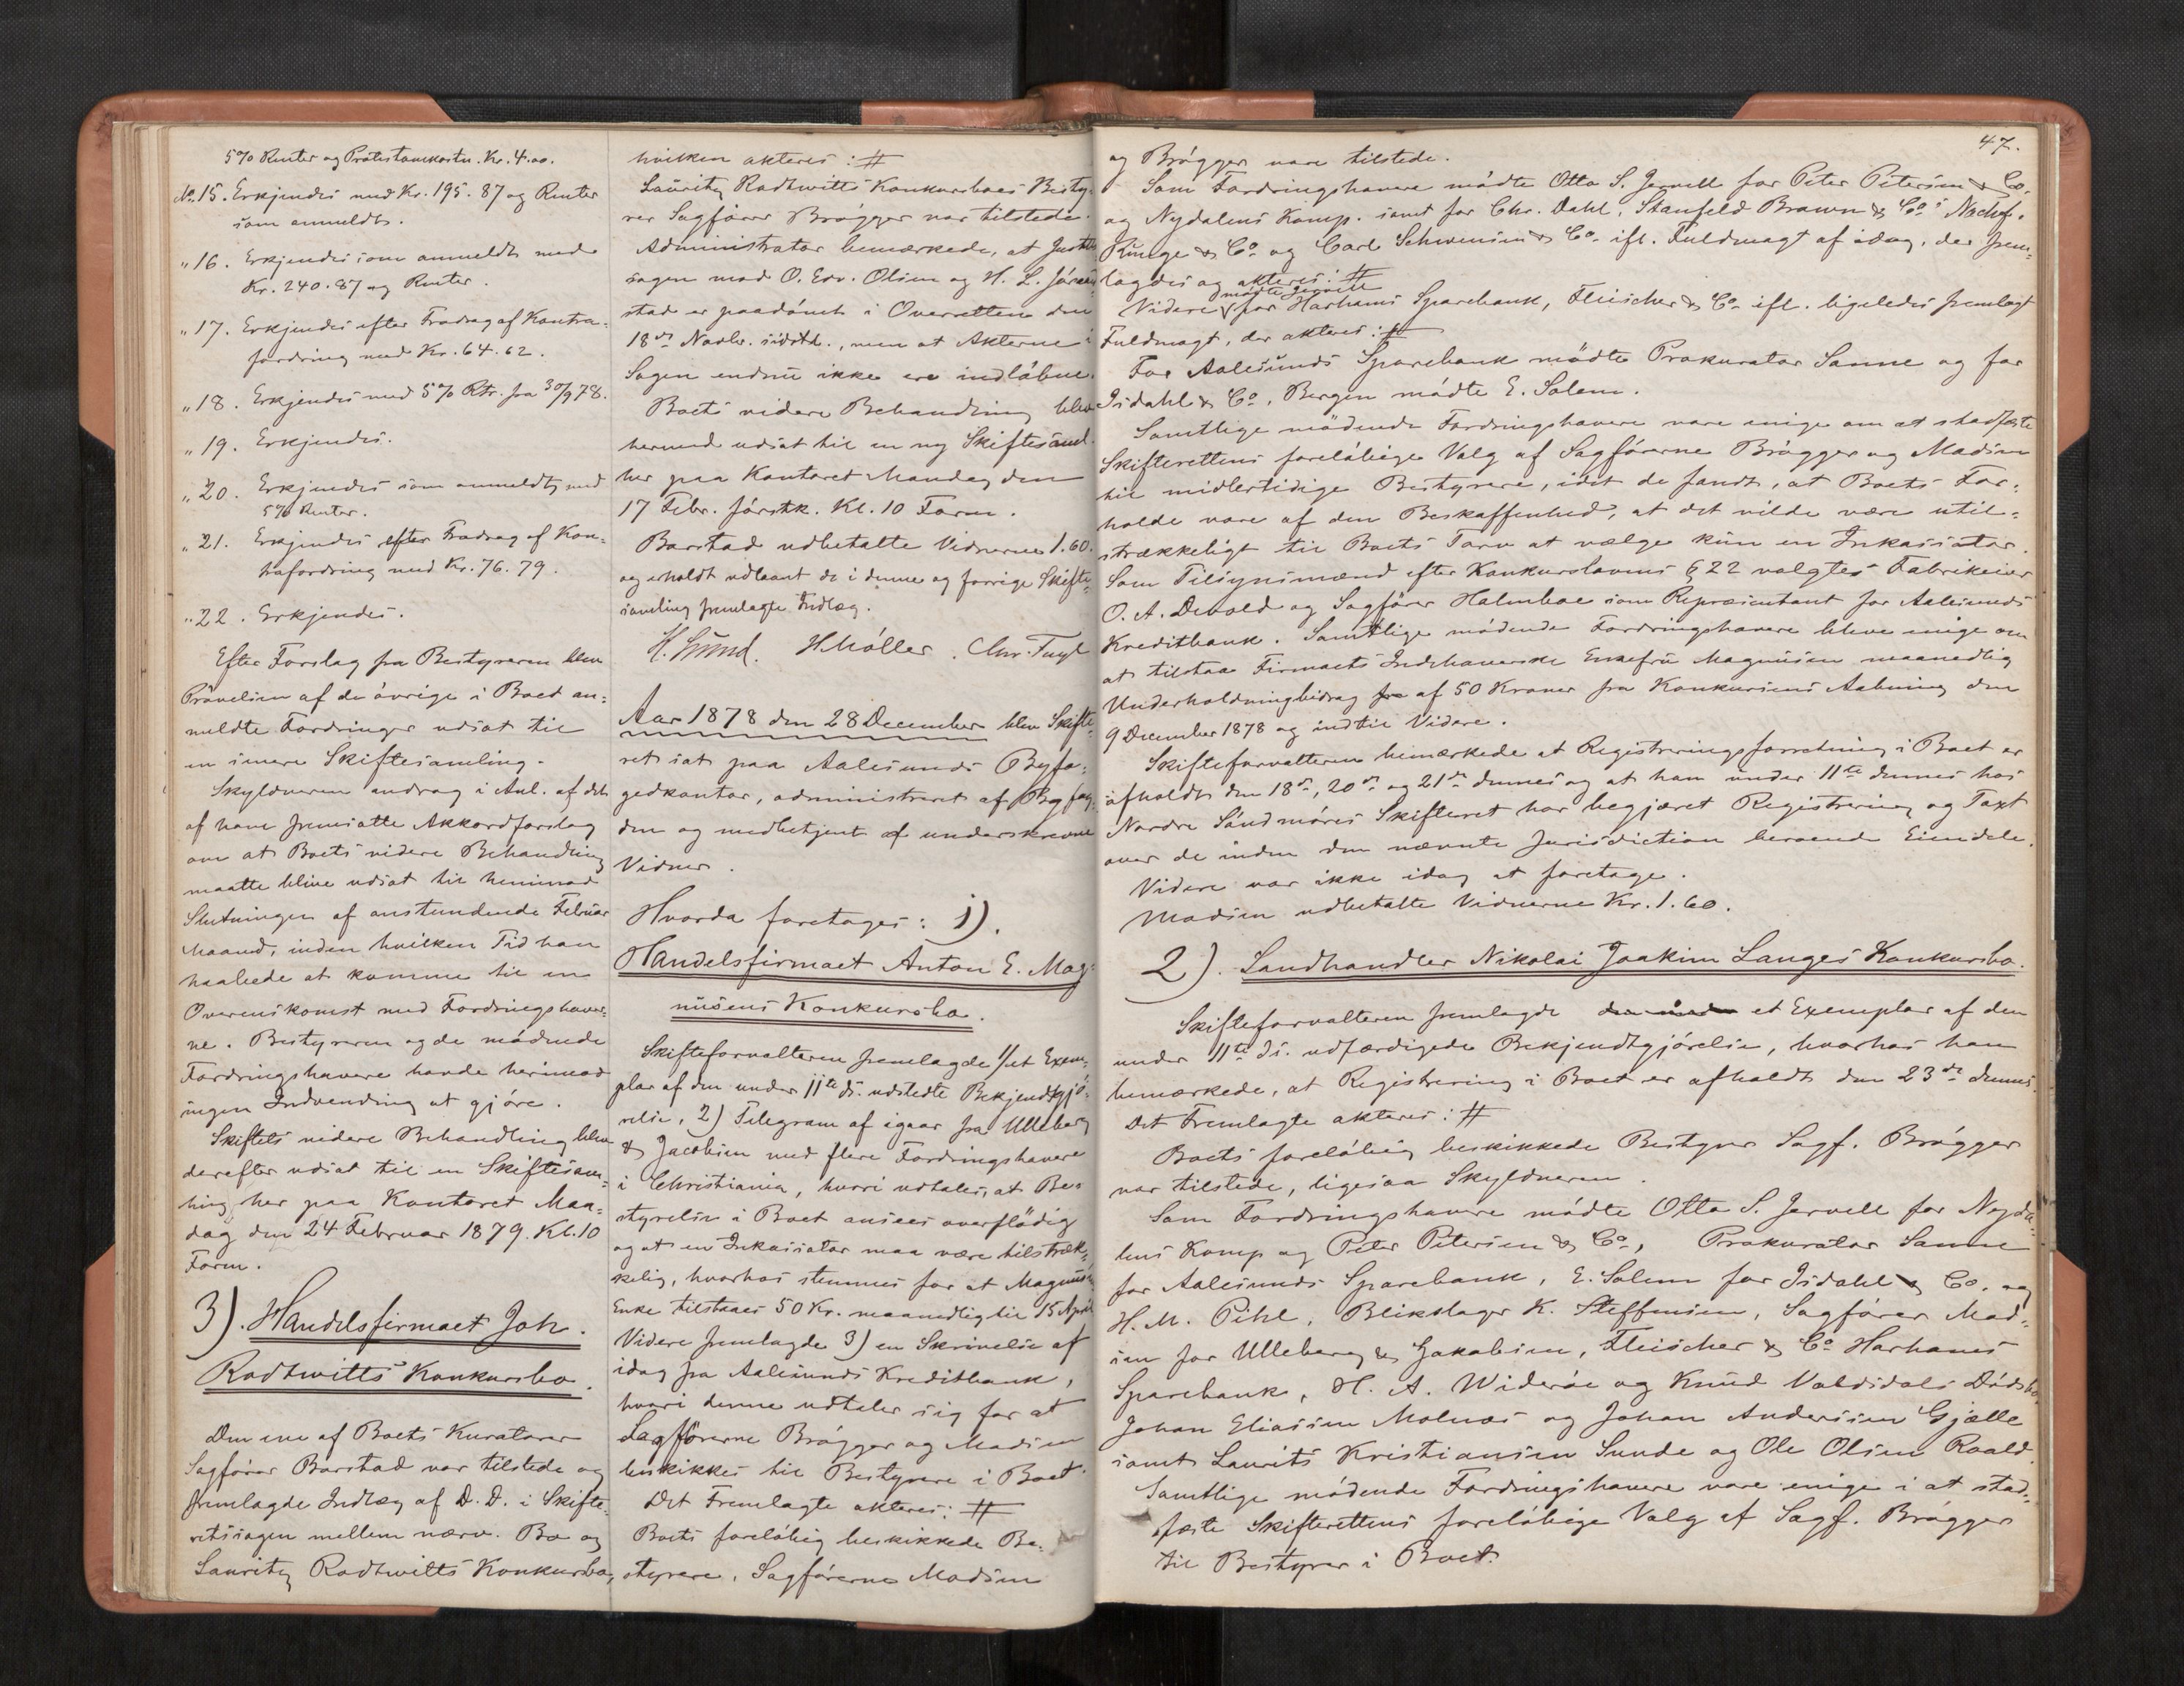 5% Renter og Protestomkostn. Kr. 4.00.
No. 15. Erkjendes med Kr. 195.87 og Renter
som anmeldt.
" 16. Erkjendes som anmeldt med
Kr. 240.87 og Renter.
" 17. Erkjendes efter Fradrag af Kontra-
fordring med Kr. 64.62.
" 18. Erkjendes med 5% Rtr. fra 30/9 78.
" 19. Erkjendes.
" 20. Erkjendes som anmeldt med
5% Renter.
" 21. Erkjendes efter Fradrag af Kon-
trafordring med Kr. 76.79.
" 22. Erkjendes.
Efter Forslag fra Bestyreren blev
Prøvelsen af de øvrige i Boet an-
meldte Fordringer udsat til
en senere Skiftesamling.
Skyldneren androg i Anl. af det
af ham fremsatte Akkordforslag
om at Boets videre Behandling
maatte blive udsat til henimod
Slutningen af anstundende Februar
Maaned, inden hvilken Tid han
haabede at komme til en
Overenskomst med Fordringshaver-
ne. Bestyreren og de mødende
Fordringshavere havde herimod
ingen Indvending at gjøre.
Skiftets videre Behandling blev
derefter udsat til en Skiftesam-
ling her paa Kontoret Man-
dag den 24 Februar 1879. Kl. 10
Form.
3). Handelsfirmaet Joh.
Rodtwitts Konkursbo.
Den ene af Boets Kuratorer
Sagfører Barstad var tilstede og
fremlagde Indlæg af D.D. i Skifte-
retssagen mellem nærv. Bo og
Lauritz Rodtwitts Konkursbo,
hvilken akteres: #
Lauritz Rodtwitts Konkursboes Besty-
rer Sagfører Brøgger var tilstede.
Administrator bemærkede, at Justits-
sagen mod O. Edv. Olsen og H. L.
stad er paadømt i Overretten den
18de Novbr. sidstl., men at Akterne i
Sagen endnu ikke ere indløbne.
Boets videre Behandling blev
hermed udsat til en ny Skiftesaml.
her paa Kontoret Mandag den
17 Febr. førstk. Kl. 10 Form.
Barstad udbetalte Vidnerne 1.60.
og erholdt udlaant de i denne og forrige Skifte-
samling fremlagte Indlæg.
H. Lund. H. Møller. Chr.
Aar 1878 den 28 December blev Skifte-
ret sat paa Aalesunds Byfo-
gedkontor, administreret af Byfog-
den og medbetjent af underskrevne
Vidner.
Hvorda foretoges: 1).
Handelsfirmaet Anton E. Mag-
nusens Konkursbo.
Skifteforvalteren fremlagde 1/ et Exem-
plar af den under 11te ds. udstedte Bekjendtgjø-
relse, 2) Telegram af igaar fra Ulleberg
& Jacobsen med flere Fordringshavere
i Christiania, hvori udtales, at Be-
styrelse i Boet ansees overflødig
og at en Inkassator maa være tilstræk-
kelig, hvorhos stemmes for at Magnusens
Enke tilstaaes 50 Kr. maanedlig til 15 April
Videre fremlagde 3) en Skrivelse af
idag fra Aalesunds Kreditbank,
hvori denne udtaler sig for at
Sagførerne Brøgger og Madsen
beskikkes til Bestyrere i Boet.
Det Fremlagte akteres: #
Boets foreløbig beskikkede Be-
styrere, Sagførerne Madsen
47.
og Brøgger vare tilstede.
Som Fordringshavere mødte Otto S. Jervell for Peter Petersen & Co.
og Nydalens Komp. samt for Chr. Dahl, Stanfeld Brown & Co's Nachf.
Runge & Co. og Carl Schwensen & Co. ifl. Fuldmagt af idag, der frem-
lagdes og akteres: #
mødte Jervell
Videre for Harhams Sparebank, Fleischer & Co. ifl. ligeledes fremlagt
Fuldmagt, der akteres: #
For Aalesunds Sparebank mødte Prokurator Sanne og for
Isdahl & Co., Bergen mødte E. Solem.
Samtlige mødende Fordringshavere vare enige om at stadfæste
Skifterettens foreløbige Valg af Sagførerne Brøgger og Madsen
til midlertidige Bestyrere, idet de fandt, at Boets For-
holde vare af den Beskaffenhed, at det vilde være util-
strækkeligt til Boets Tarv at vælge kun en Inkassator.
Som Tilsynsmænd efter Konkurslovens § 22 valgtes Fabrikeier
O. A. Devold og Sagfører Holmboe som Repræsentant for Aalesunds
Kreditbank. Samtlige mødende Fordringshavere bleve enige om
at tilstaa Firmaets Indehaverske Enkefru Magnusen maanedlig
Underholdningbidrag fra af 50 Kroner fra Konkursens Aabning den
9 December 1878 og indtil Videre.
Skifteforvalteren bemærkede at Registreringsforretning i Boet er
afholdt den 18de, 20de og 21de dennes og at han under 11te dennes hos
Nordre Søndmøres Skifteret har begjæret Registrering og Taxt
over de inden den nævnte Jurisdiction beroende Eiendele.
Videre var ikke idag at foretage.
Madsen udbetalte Vidnerne Kr. 1.60.
2). Landhandler Nikolai Joakim Langes Konkursbo.
Skifteforvalteren fremlagde den under et Exemplar af den
under 11te ds. udfærdigede Bekjendtgjørelse, hvorhos han
bemærkede, at Registrering i Boet er afholdt den 23de dennes.
Det Fremlagte akteres: #
Boets foreløbig beskikkede Bestyrer Sagf. Brøgger
var tilstede, ligesaa Skyldneren.
Som Fordringshavere mødte Otto S. Jervell for Nyda-
lens Komp og Peter Petersen & Co., Prokurator Sanne
for Aalesunds Sparebank, E. Solem for Isdahl & Co. og
H. M. Pihl, Blikslager K. Steffensen, Sagfører Mad-
sen for Ulleberg & Jakobsen, Fleischer & Co. Harhams
Sparebank, H. A. Widerøe og Knud Valdsdals Dødsbo,
Johan Eliassen Molnæs og Johan Anderssen Gjælle
samt Laurits Kristiansen Sunde og Ole Olsen Roald.
Samtlige mødende Fordringshavere vare enige i at stad-
fæste Skifterettens foreløbige Valg af Sagf. Brøgger
til Bestyrer i Boet.